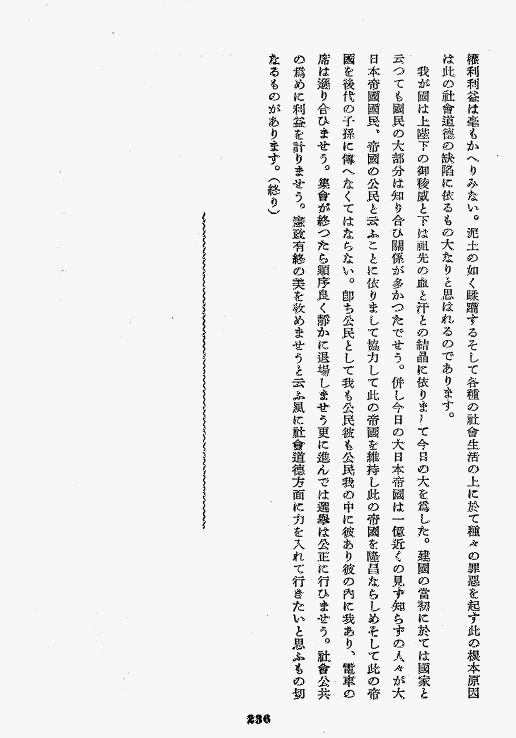 權利利益は毫もかへりみない。泥土の如く蹂躙するそして各種の社會生活の上に於て種々の罪惡を起す此の根本原因
は此の社會道德の缺陷に依るもの大なりと思はれるのであります。
我が國は上陛下の御稜威と下は祖先の血と汗との結晶に依りまして今日の大を爲した。建國の當初に於ては國家と
云つても國民の大部分は知り合ひ關係が多かつたでせう。併し今日の大日本帝國は一億近くの見ず知らずの人々が大
日本帝國國民、帝國の公民と云ふことに依りまして協力して此の帝國を維持し此の帝國を隆昌ならしめそして此の帝
國を後代の子孫に傳へなくてはならない。卽ち公民として我も公民彼も公民我の中に彼あり彼の內に我あり、電車の
席は讓り合ひませう。集會が終つたら順序良く靜かに退場しませう更に進んでは選擧は公正に行ひませう。社會公共
の爲めに利益を計りませう。憲政有終の美を收めませうと云ふ風に社會道德方面に力を入れて行きたいと思ふもの切
なるものがあります。(終り)
236